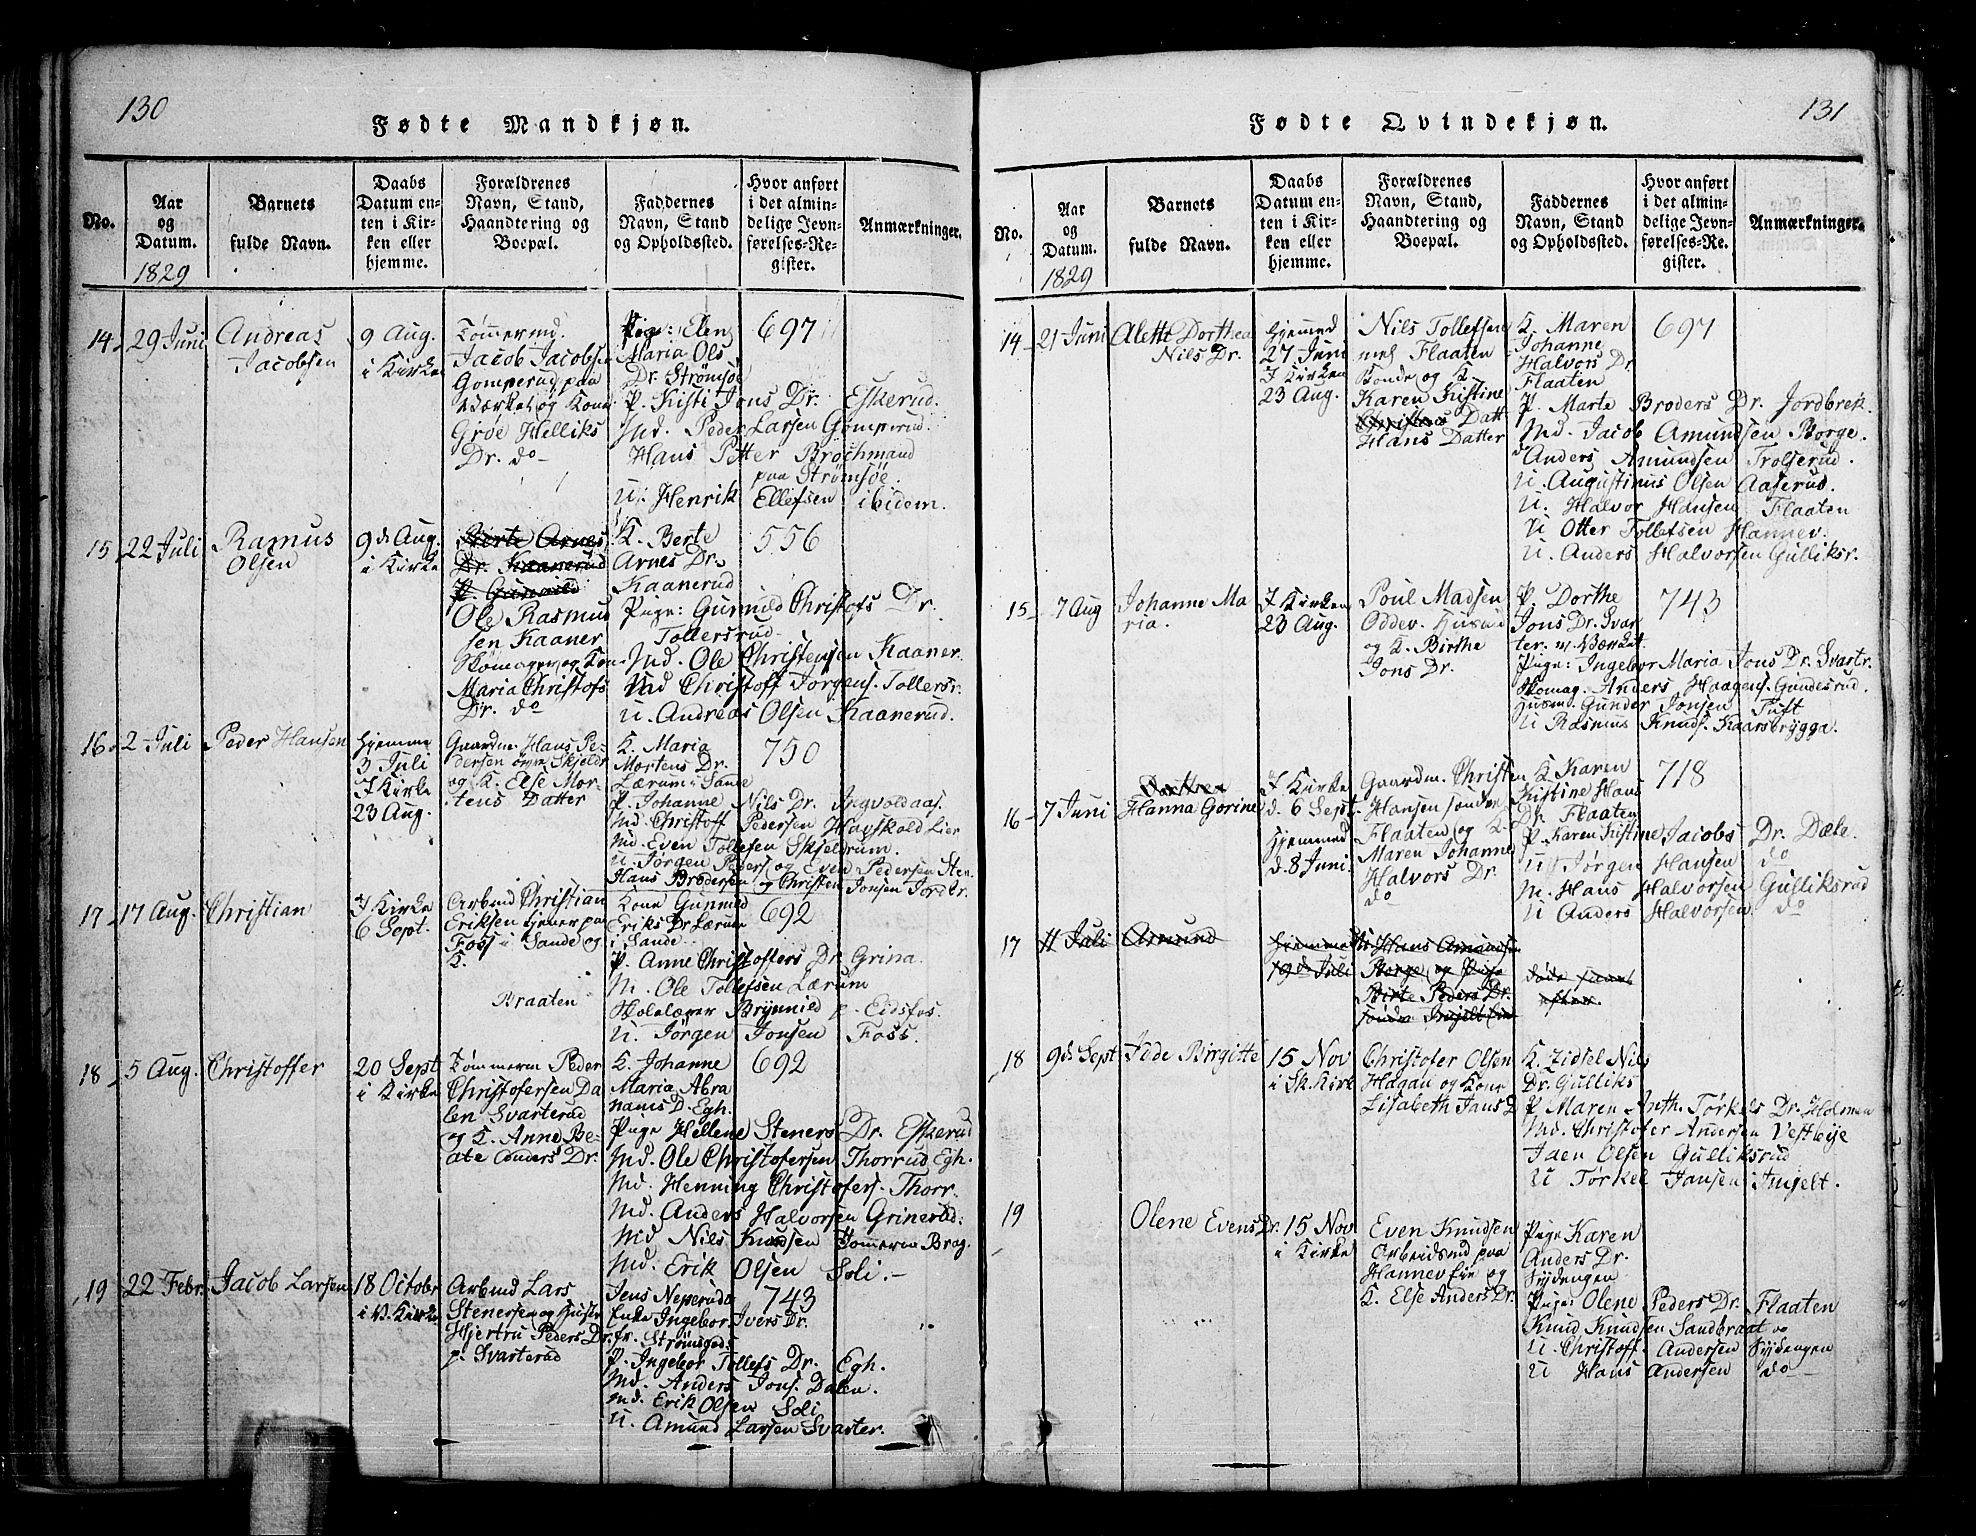 130
Fødte Mandkjøn.
No.
Aar
og
Datum.
1829
Barnets
fulde Navn.
Daabs
Datum en-
ten i Kir-
ken eller
hjemme.
Forældrenes
Navn, Stand,
Haandtering og
Boepæl.
Faddernes
Navn, Stand
og Opholdssted.
Hvor anført
i det almin-
delige Jevn-
førelses-Re-
gister.
Anmærkninger.
14
29 Juni
Andreas
Jacobsen
9 Aug.
i Kirke
Tømmermd.
Jacob Jacobsen
Gomperud paa
Værket og Kone
Groe Helliks
Dr. do
Pige: Elen
Maria Ols
Dr. Strømsöe
P. Kisti Jons Dr. Eskerud.
Md. Peder Larsen Gomperud.
Hans Petter Brochmand
paa Strømsöe.
U. Henrik Ellefsen ibidem.
697
15
22 Juli
Rasmus
Olsen
9de Aug.
i Kirke
Berte Arnes
Dr. Kaanerud
P. Gunild
Ole Rasmus
sen Kaaner
Skomager og Kone
Maria Christofs
Dr. do
K. Berte
Arnes Dr.
Kaanerud
Pige: Gunnild Christofs Dr.
Tollersrud
Md. Ole Christensen Kaaner.
Md Christoff Jørgens. Tollersr.
U. Andreas Olsen Kaanerud.
556
16
2 Juli
Peder Hansen
Hjemme
3 Juli
I Kirke
23 Aug.
Gaardm. Hans Pe-
dersen øvre Skjeldr
og K. Else Mor-
tens Datter
K. Maria
Mortens Dr.
Lærum i Sande
P. Johanne Nils Dr. Ingvoldaas.
Md. Christoff Pedersen Havskold Lier
Md. Even Tollefsen Skjeldrum.
U. Jørgen Peders. og Even Pedersen Sten
Hans Brodersen og Christen Jonsen Jordbr.
750
17
17 Aug.
Christian
I Kirke
6 Sept.
Arbmd Christian
Eriksen tjener paa
Foss i Sande og
K.
Braaten
Kone Gunnild
Eriks Dr Lærum
i Sande
P. Anne Christoffers Dr Grina.
M. Ole Tollefsen Lærum
Skolelærer Brynnild p. Eidsfos.
U. Jørgen Jonsen Foss.
692
18
5 Aug.
Christoffer
20 Sept
i Kirke
Tømmerm Peder
Christofersen Da
len Svarterud
og K. Anne Be-
ate Anders Dr.
K. Johanne
Maria Abra
hams D. Egh.
Pige Hellene Steners Dr. Eskerud
Md. Ole Christofersen Thorrud Egh.
Md. Henning Christofers. Thorr.
Md. Anders Halvorsen Grinerud.
Md Nils Knudsen Tømmerm Brag.
Md. Erik Olsen Soli.
692
19
22 Febr.
Jacob Larsen
18 October
i V. Kirke
Arbmd Lars
Stenersen og Hustr
Hjertru Peders Dr.
p. Svarterud
Jens Neperuds
Enke Ingebor Ivers Dr.
fr. Strømsgods
P. Ingebor Tollefs Dr. Egh.
Md. Anders Jons. Dalen.
Md. Erik Olsen Soli
U. Amund Larsen Svarter.
743
131
Fødte Qvindekjøn.
No.
Aar
og
Datum.
1829
Barnets
fulde Navn.
Daabs
Datum en-
ten i Kir-
ken eller
hjemme.
Forældrenes
Navn, Stand,
Haandtering og
Boepæl.
Faddernes
Navn, Stand
og Opholdssted.
Hvor anført
i det almin-
delige Jevn-
førelses-Re-
gister.
Anmærkninger.
14
21 Juni
Alette Dorthea
Nils Dr.
Hjemmed
27 Juni
I Kirken
23 Aug.
Nils Tollefsen
mel. Flaaten
Bonde og K.
Karen Kistine
Christens Datt
Hans Datter
K. Maren
Johanne
Halvors Dr.
Flaaten
P. Marte Broders Dr. Jordbrek.
Md. Jacob Amundsen Borge.
Anders Amundsen Trolserud.
U. Augustinus Olsen Aaserud.
U. Halvor Hansen Flaaten
U Otter Tollefsen Hannev.
U. Anders Halvorsen Gulliksr.
697
15
7 Aug
Johanne Ma
ria.
I Kirken
23 Aug.
Poul Madsen
Oddev. Husm
og K. Birthe
Jons Dr.
P. Dorthe
Jons Dr. Svar
ter. v. Værket
Pige: Ingebor Maria Jons Dr. Svartr.
Skomag. Anders Haagens. Gundesrud.
Husm. Gunder Jonsen Tuft
U Rasmus Knuds. Kaarsbrygga.
743
16
7 Juni
Hanna Gorine
I Kirke
d. 6 Sept.
Hjemmed
d. 8 Juni
Gaardm. Christen
Hansen søndre
Flaaten og K.
Maren Johanne
Halvors Dr.
do
K Karen
Kistine Hans
Dr. Flaaten
P. Karen Kistine Jacobs Dr. Dæle.
U Jørgen Hansen do
M. Hans Halvorsen Gulliksrud
U Anders Halvorsen do
718
17
11 Juli
Amund
Hjemmed
19de Juli
Hans Amundsen
Borge og Pige
Birte Peders Dr.
søndre Ingelt Eie
døde samt
efter.
18
9de Sept
Fede Birgitte
15 Nov
i Sk. Kirk
Christofer Olsen
Hagan og Kone
Lisabeth Jans D
K. Zidsel Nils
Dr. Gulliks
P Maren Anth. Torkels Dr. Holmen
Md. Christofer Andersen Vestbye
Jaen Olsen Gulliksrud
U Torkel Jansen Ingelt.
19
Olene Evens Dr.
15 Nov
i Kirke
Even Knudsen
Arbeidsmd paa
Hannev Eie og
K. Else Anders Dr
Pige Karen
Anders Dr.
Sydengen
Pige: Olene Peders Dr. Flaaten
Knud Knudsen Sandbraat
U. Christoff. Andersen Sydengen
U Hans Andersen do